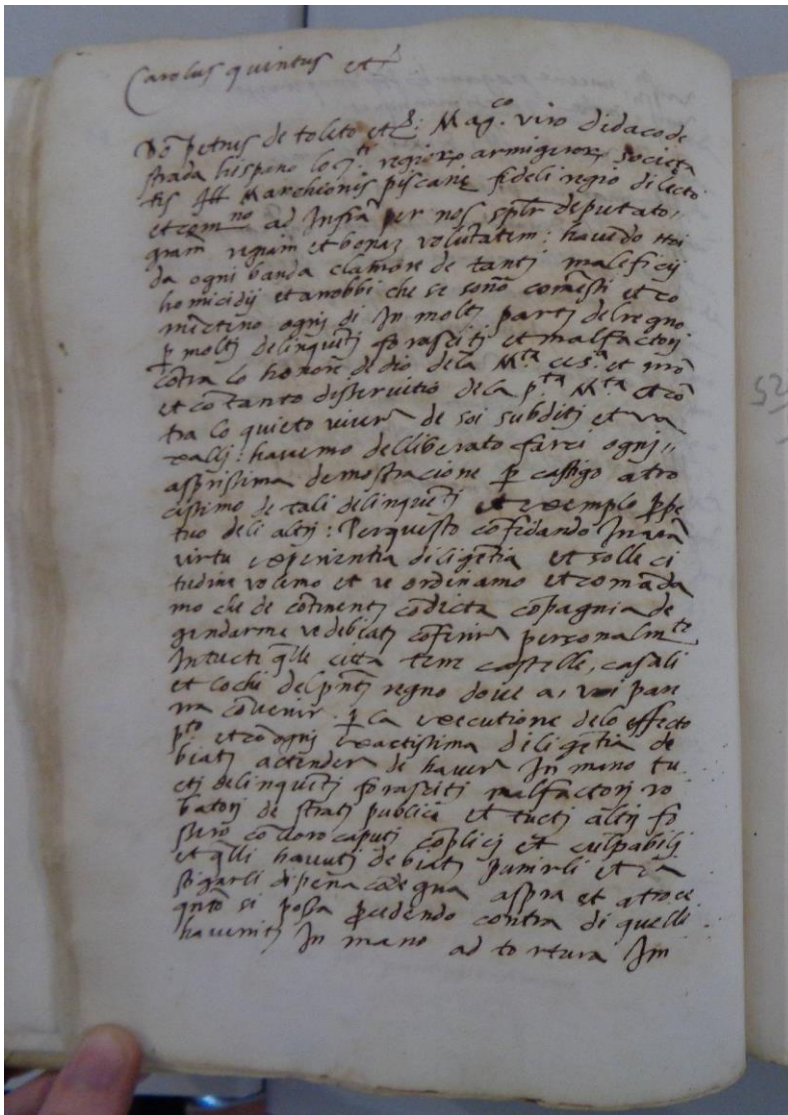 Carolus quintus etc
Dō petrus de toleto etc: Mag.co viro didaco de
strada hispano locj.ti regiorȝ armigerorȝ societa
tis Ill Marchionis piscarie fideli regio dilecto
et com no ad Infra per nos spīlr deputato,
gram regiam et bonaȝ volūtatem: havēdo noi
da ogni banda clamore de tantj maleficij
homicidij et arrobbi che se sonō comessi et co
mectino ognj dj In moltj partj del regno
p moltj delinquētj forascitj et malfactorj
cōtra lo honore de dio dela M.ta ces.a et nrō
et co tanto disservitio dela p.ta M.ta et cō
tra lo quieto viver de soi subditj et va
xallj: havemo delliberato farci ognj
asprissima demostracione p castigo atro
cissimo de tali delinquētj et exemplo ppe
tuo deli altrj: Per questo cōfidando In vrā
virtu experientia diligētia et solleci
tudine volemo et ve ordinamo et comāda
mo che de cōtinentj cō dicta cōpagnia de
gendarme ve debiatj cōferire personalm.te
In tucti q̄lle citta terre castelle, casali
et lochi del pn̄tj regno dove a, voi pare
rra cōvenir p la executione delo effecto
p.to et cō ognj exactissima diligētia de
biatj actender de haver In mano tu
ctj delinquētj forascitj malfactorj ro
batorj de stratj publici et tuctj altrj fo
ssero cō loro caputj cōplicj et culpabilj
et q̄lli havutj debiatj punirli et ca
stigarli di pena cōdegna aspra et atroce
quāto si possa pcedendo contra di quelli
haveritj In mano ad tortura Im
52